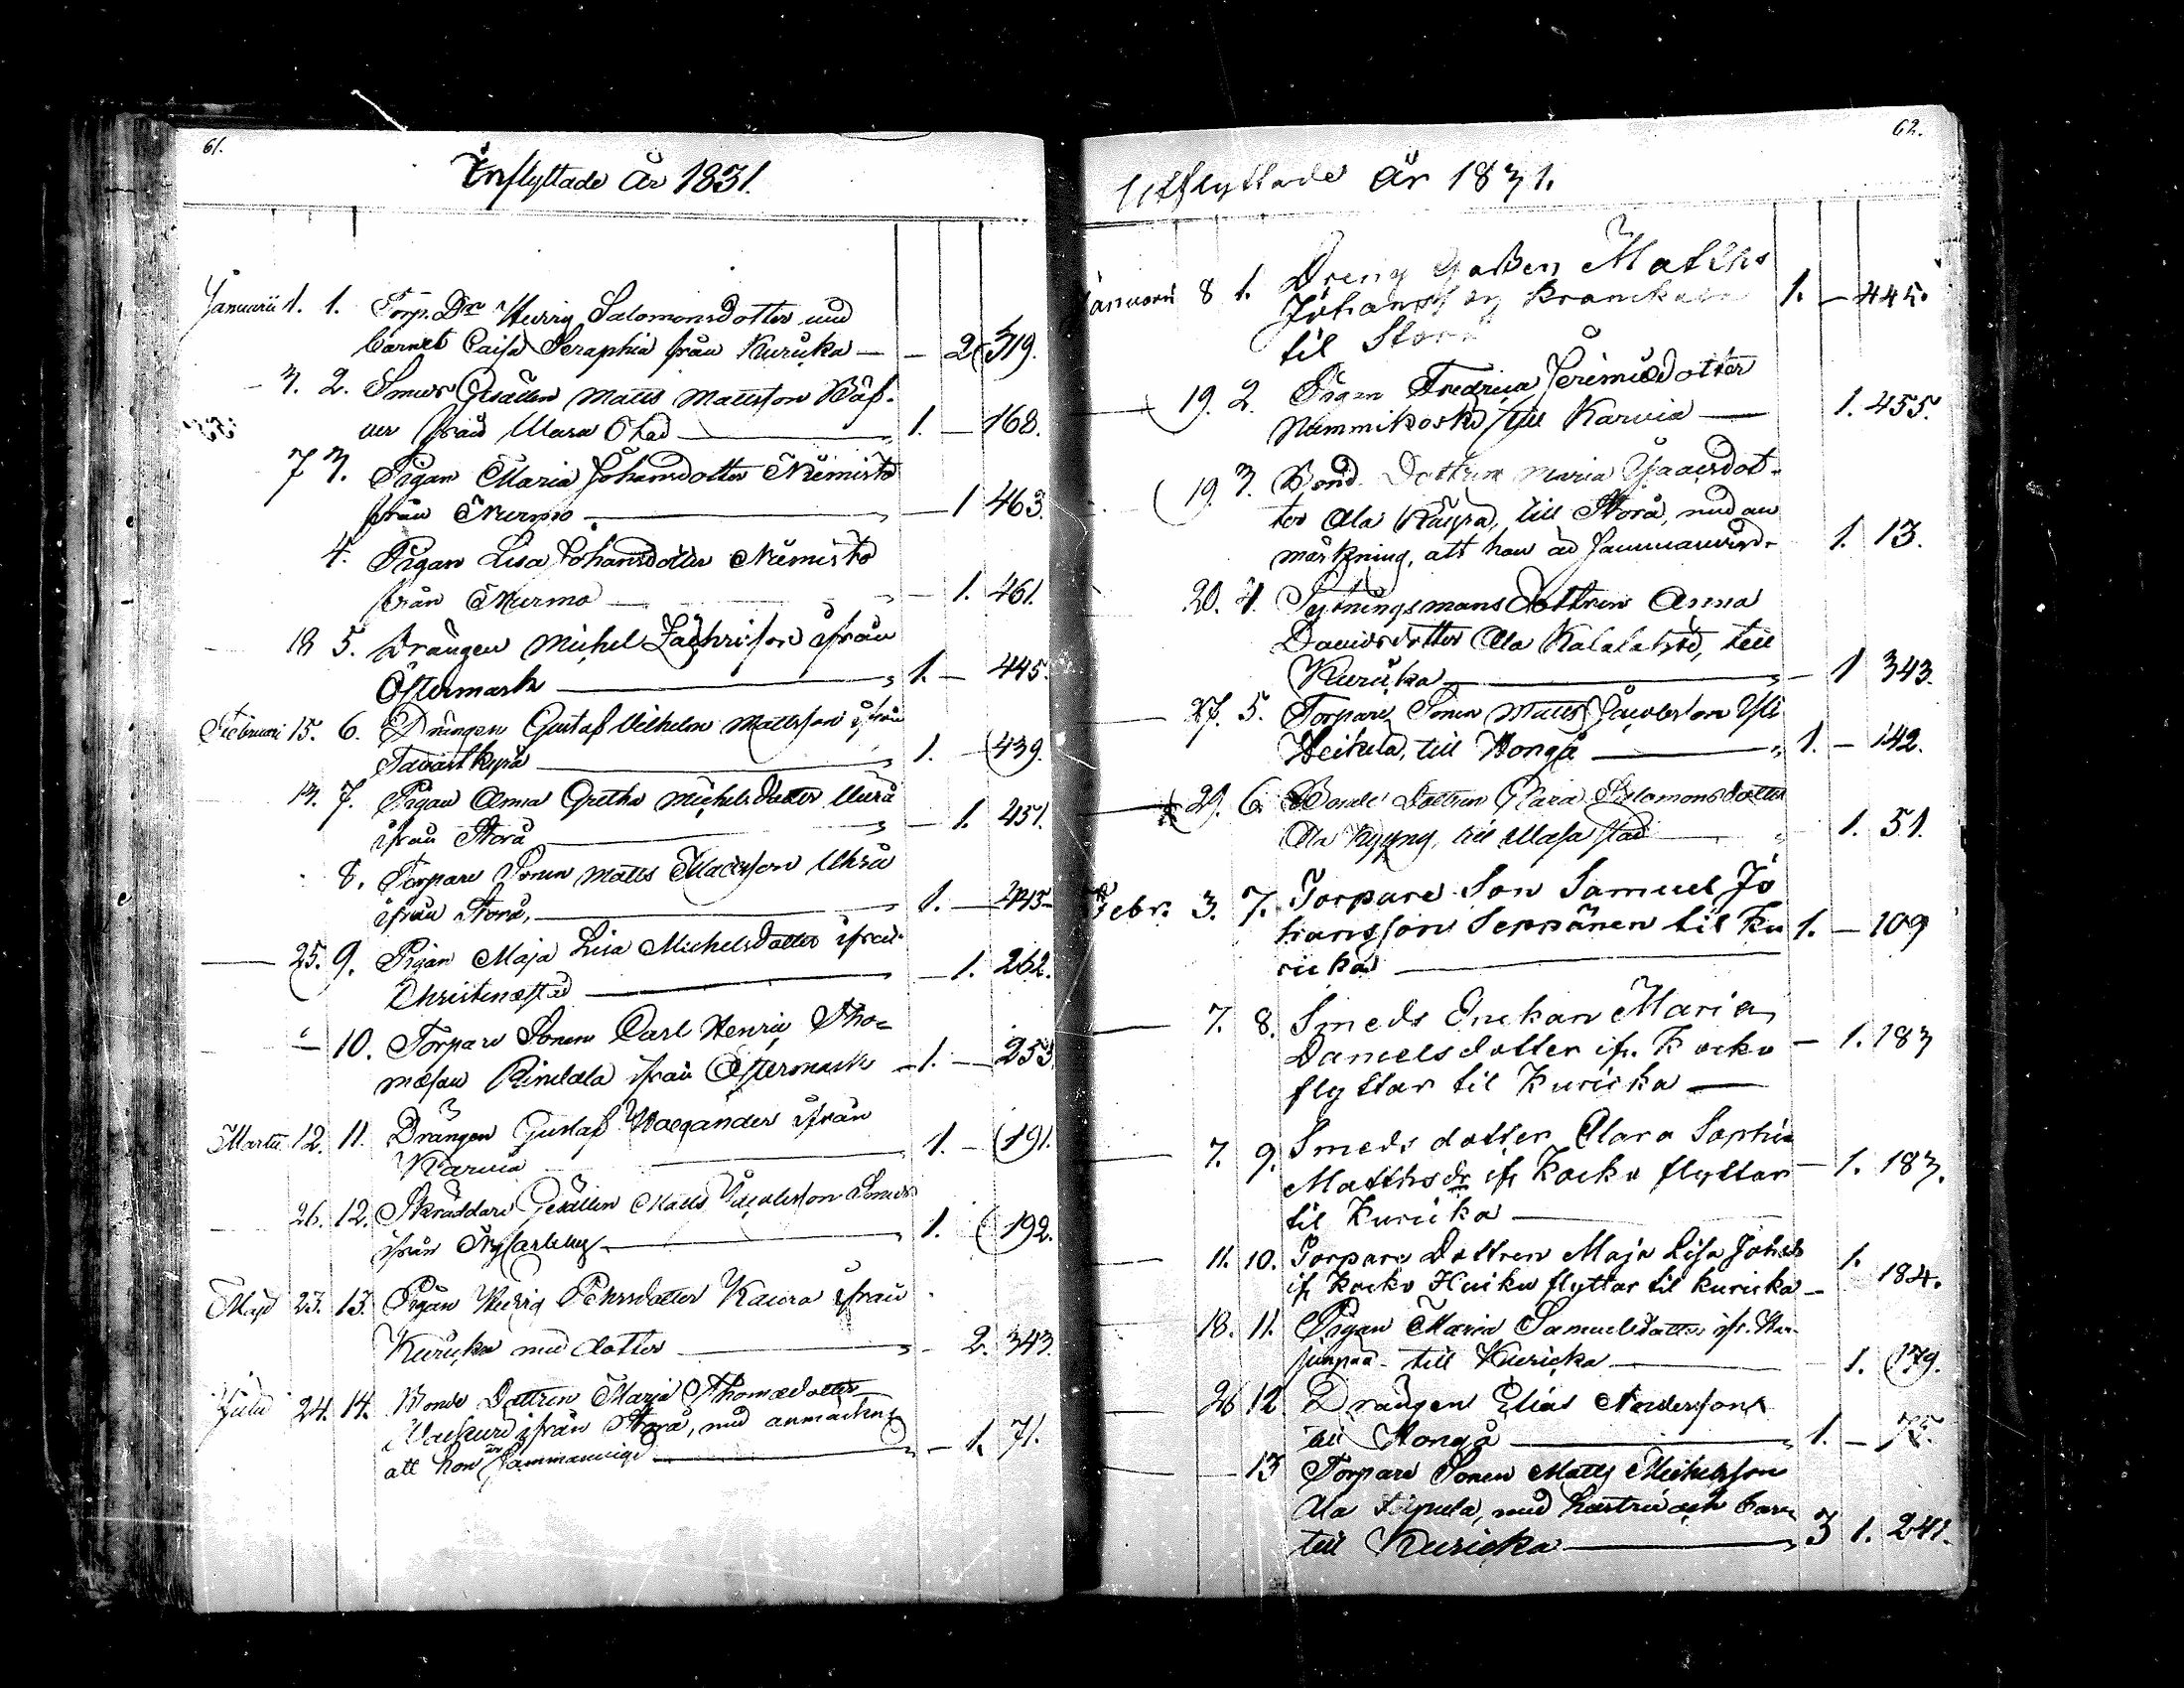 61.
Inflyttade år 1831.
Januarii 1. 1. Torp. Dr Hedvig Salomonsdotter med
barnet Caisa Seraphia från Kurikka — — 2 319.
3. 2. Smeds Gesällen Matts Mattsson
från Wasa Stad — 1. — 168.
7 3. Pigan Maria Johansdotter Niemistö
från Nurmo — 1 463.
4. Pigan Lisa Johansdotter Niemistö
från Nurmo — 1. 461.
18 5. Drängen Michel Zachrisson ifrån
Östermark — 1. — 445.
Februari 15. 6. Drängen Gustaf Vilhelm Mattsson ifrån
Tavastkyrå — 1. — 439.
13. 7. Pigan Anna Gretha Michelsdotter
ifrån Storå — 1. 451.
8. Torpare Sonen Matts
ifrån Storå, — 1. — 445
25. 9. Pigan Maja Lisa Michelsdotter ifrån
Christinæstad — 1. 262.
10. Torpare Sonen Carl Henric Tho-
masson Rindala ifrån Östermark — 1. — 253
Martii 12. 11. Drängen Gustaf ifrån
Karvia — 1. — 191.
26. 12. Skräddare Gesällen Matts Jacobsson
ifrån Nycarleby — 1. 192.
Maji 23. 13. Pigan Hedvig Pehrsdotter Kaura ifrån
Kurikka med dotter — 2. 343.
Julii 24. 14. Bonde Dottren Maria Thomædotter
ifrån Storå, med anmärkn
att hon är sammanvigd — 1. 71.
62.
Utflyttade År 1831.
Januarii 8 1. Dreng Gossen Matths
Johans 1. — 445.
til Storå
19. 2. Pigan Fredrica Jeremiædotter
Nummikoski till Karvia — 1. 455.
19. 3. Bond Dottren Maria
ter Ala, till Storå, med an
märkning, att hon är sammanvigd. 1. 13.
20. 4. Sytningsmans Dottren Anna
Davidsdotter Ala Kalalahti, till
Kurikka — 1 343.
27. 5. Torpare Sonen Matts Jacobsson Yli
Heikkilä, till Hongå — 1. — 142.
29. 6. Bonde Dottren Clara Salomonsdotter
Ala, till Wasa stad 1. 51.
Febr. 3. 7. Torpare Son Samuel Jo
hansson Seppänen til Ku 1. — 109
ricka —
7. 8. Smeds Enckan Maria
Danielsdotter ifr. Kocko — 1. 183
flyttar til Kuricka —
7. 9. Smeds dotter Clara Sophia
Matthsdr ifr Kocko flyttar — 1. 183.
til Kuricka —
11. 10. Torpare Dottren Maja Lisa Johsdr 1.
ifr Kocko flyttar til Kuricka — 184.
18. 11. Pigan Maria Samuelsdotter ifr.
till Kuricka — 1. 179.
26 12 Drängen Elias Andersson
till Hongå — 1. — 75.
13 Torpare Sonen Matts Michelsson
Ala, med hustru och barn
till Kuricka — 3 1. 241.